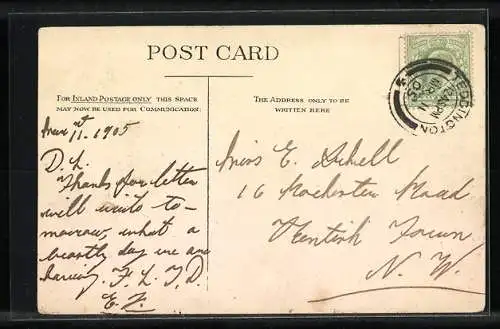 POST CARD
FOR INLAND POSTAGE ONLY THIS SPACE
MAY NOW BE USED FOR COMMUNICATION:
THE ADDRESS ONLY TO BE
WRITTEN HERE
TEDDINGTON
11. 1905
D. L.
Thanks for letter
will write to-
morrow, what a
beastly day we are
having. F. L. I. D.
E. F.
Miss E.
16 Rochester Road
Kentish Town
N. W.